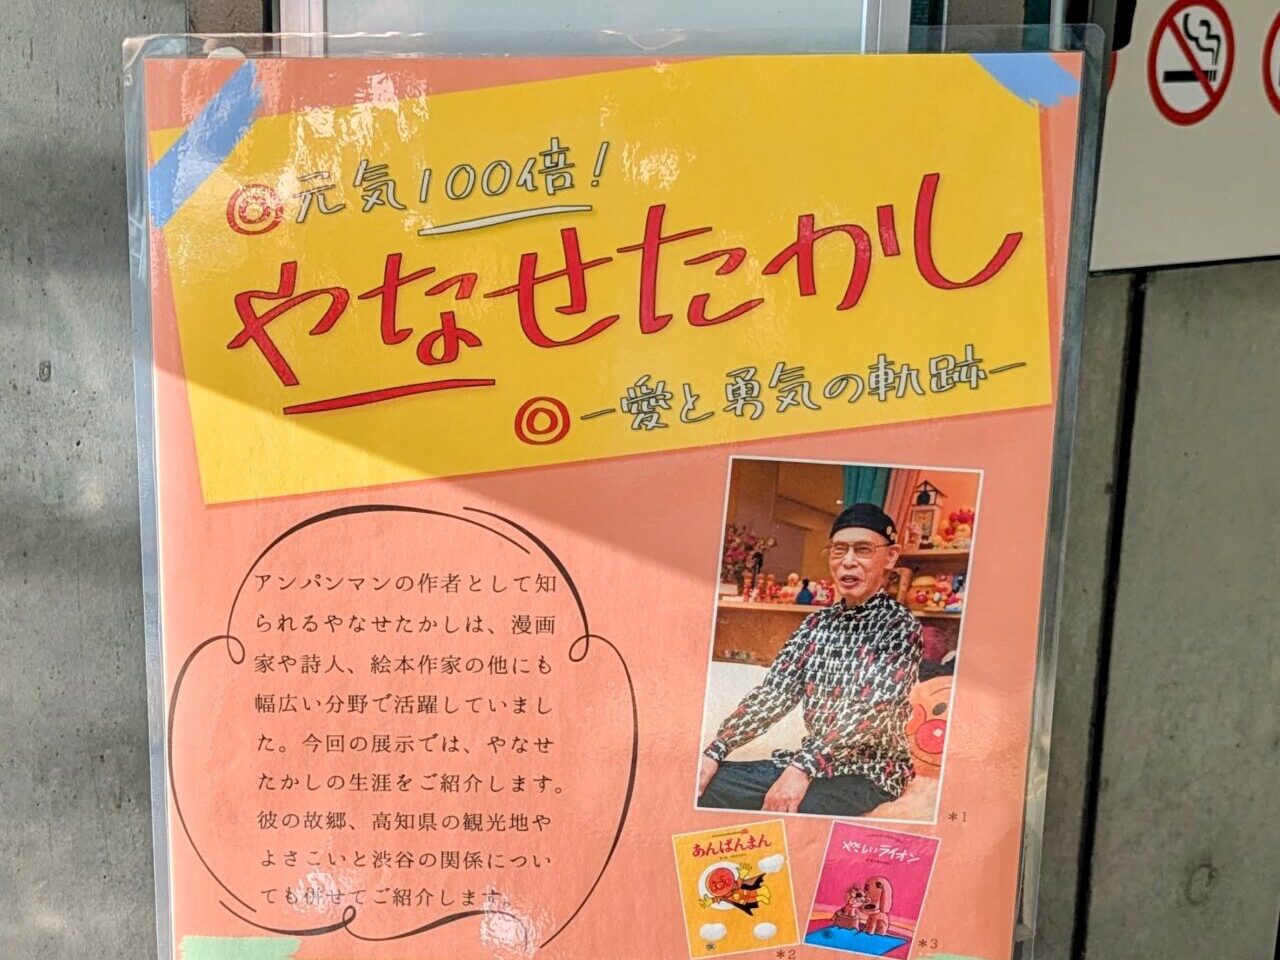 元気100倍!
やなせたかし
—愛と勇気の軌跡—
アンパンマンの作者として知
られるやなせたかしは、漫画
家や詩人、絵本作家の他にも
幅広い分野で活躍していまし
た。今回の展示では、やなせ
たかしの生涯をご紹介します。
彼の故郷、高知県の観光地や
よさこいと渋谷の関係につい
ても併せてご紹介します。
*1
あんぱんまん
やさしいライオン
*2
*3